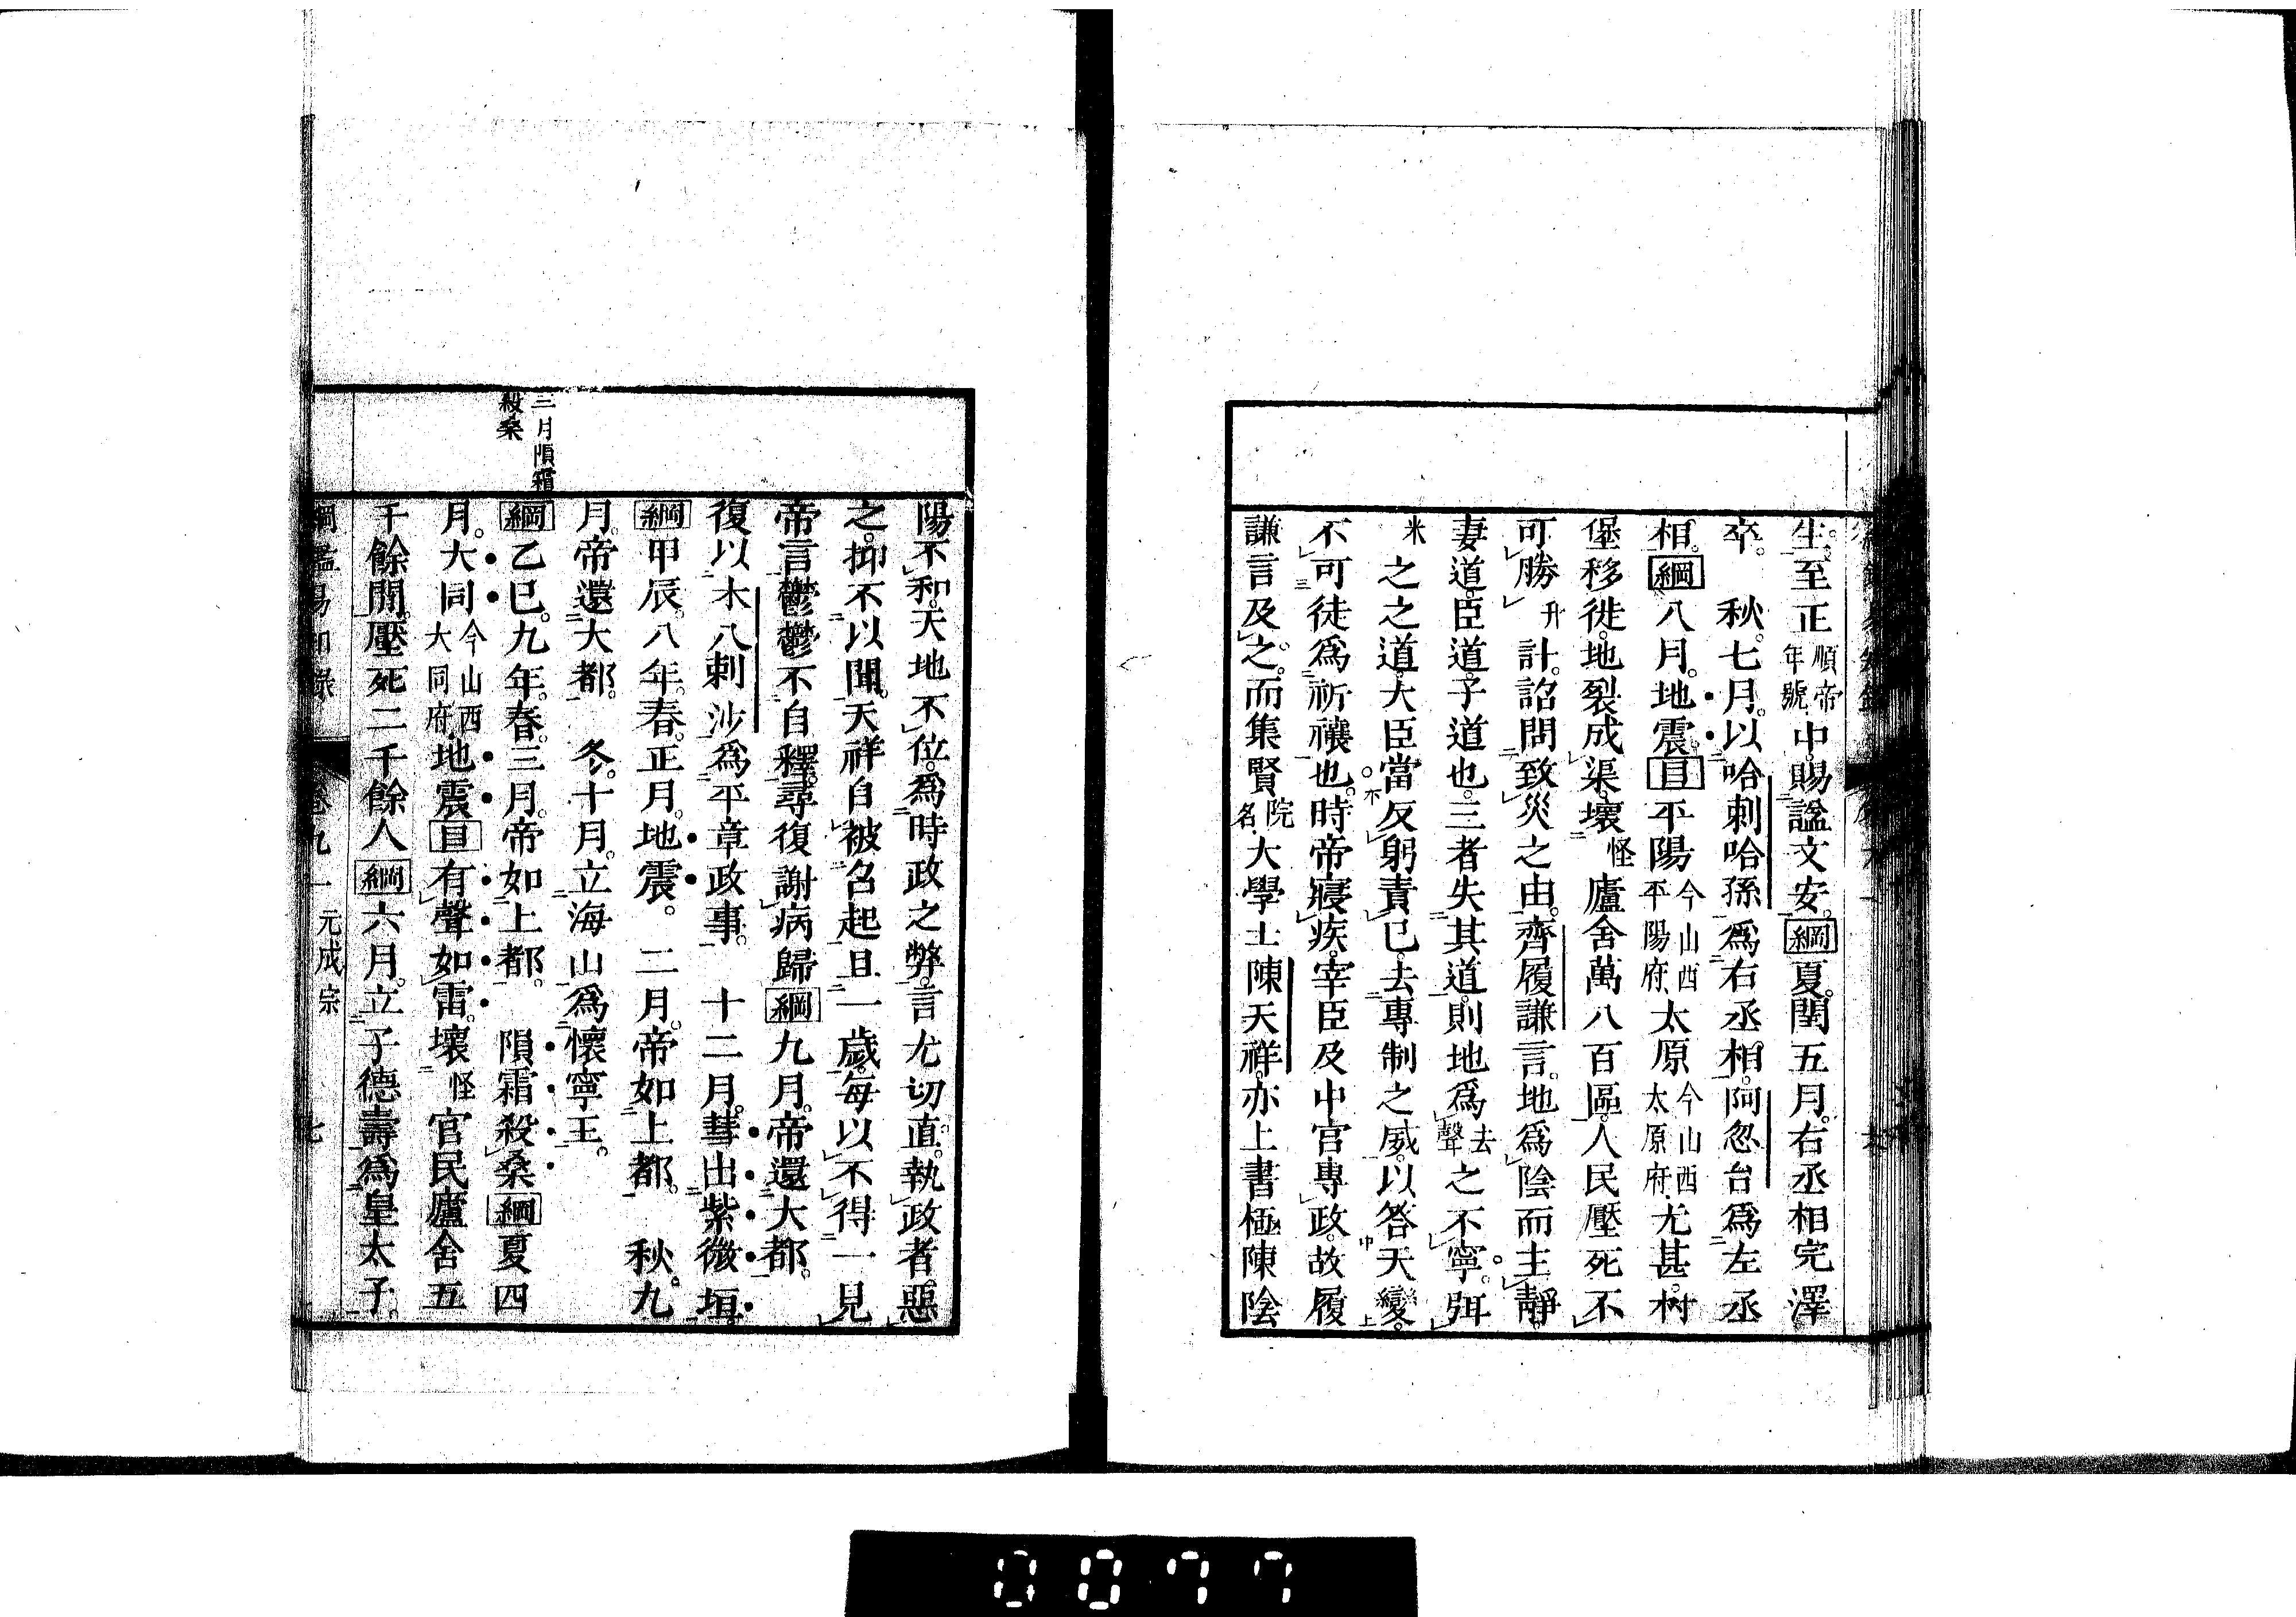 生。至正順帝年號中。賜諡文安。綱夏。閏五月。右丞相完澤
卒。 秋。七月。以哈剌哈孫爲右丞相。阿忽台爲左丞
相。綱八月。地震。目平陽今山西平陽府太原今山西太原府尤甚。村
堡移徙。地裂成渠。壞怪廬舍萬八百區。人民壓死不
可勝升計。詔問致災之由。齊履謙言。地爲陰而主靜。
妻道。臣道。子道也。三者失其道。則地爲去聲之不寧。弭
米之之道。大臣當反躬責己。去專制之威。以答天變。
不可徒爲祈禳也。時帝寢疾。宰臣及中宮專政。故履
謙言及之。而集賢院名大學士陳天祥。亦上書極陳陰
陽不和。天地不位。爲時政之弊。言尤切直。執政者。惡
之。抑不以聞。天祥自被召起且一歲。每以不得一見
帝言。鬱鬱不自釋。尋復謝病歸綱九月。帝還大都。
復以木八剌沙爲平章政事。 十二月。彗出紫微垣。
綱甲辰。八年。春。正月。地震。 二月。帝如上都。 秋。九
月。帝還大都。 冬。十月。立海山爲懷寧王。
三月隕霜
殺桑
綱乙巳。九年。春。三月。帝如上都。 隕霜殺桑綱夏四
月。大同今山西大同府地震目有聲如雷。壞怪官民廬舍五
千餘間。壓死二千餘人綱六月。立子德壽爲皇太子。
綱鑑易知錄 卷九一 元成宗 七